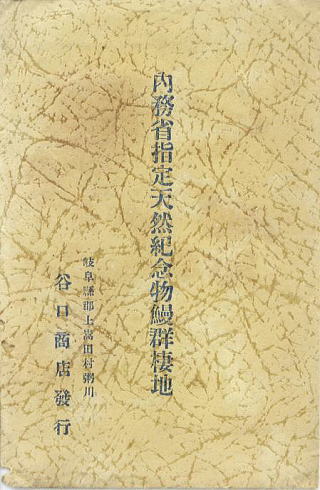 內務省指定天然紀念物鰻群棲地
岐阜縣郡上嵩田村粥川
谷口商店發行